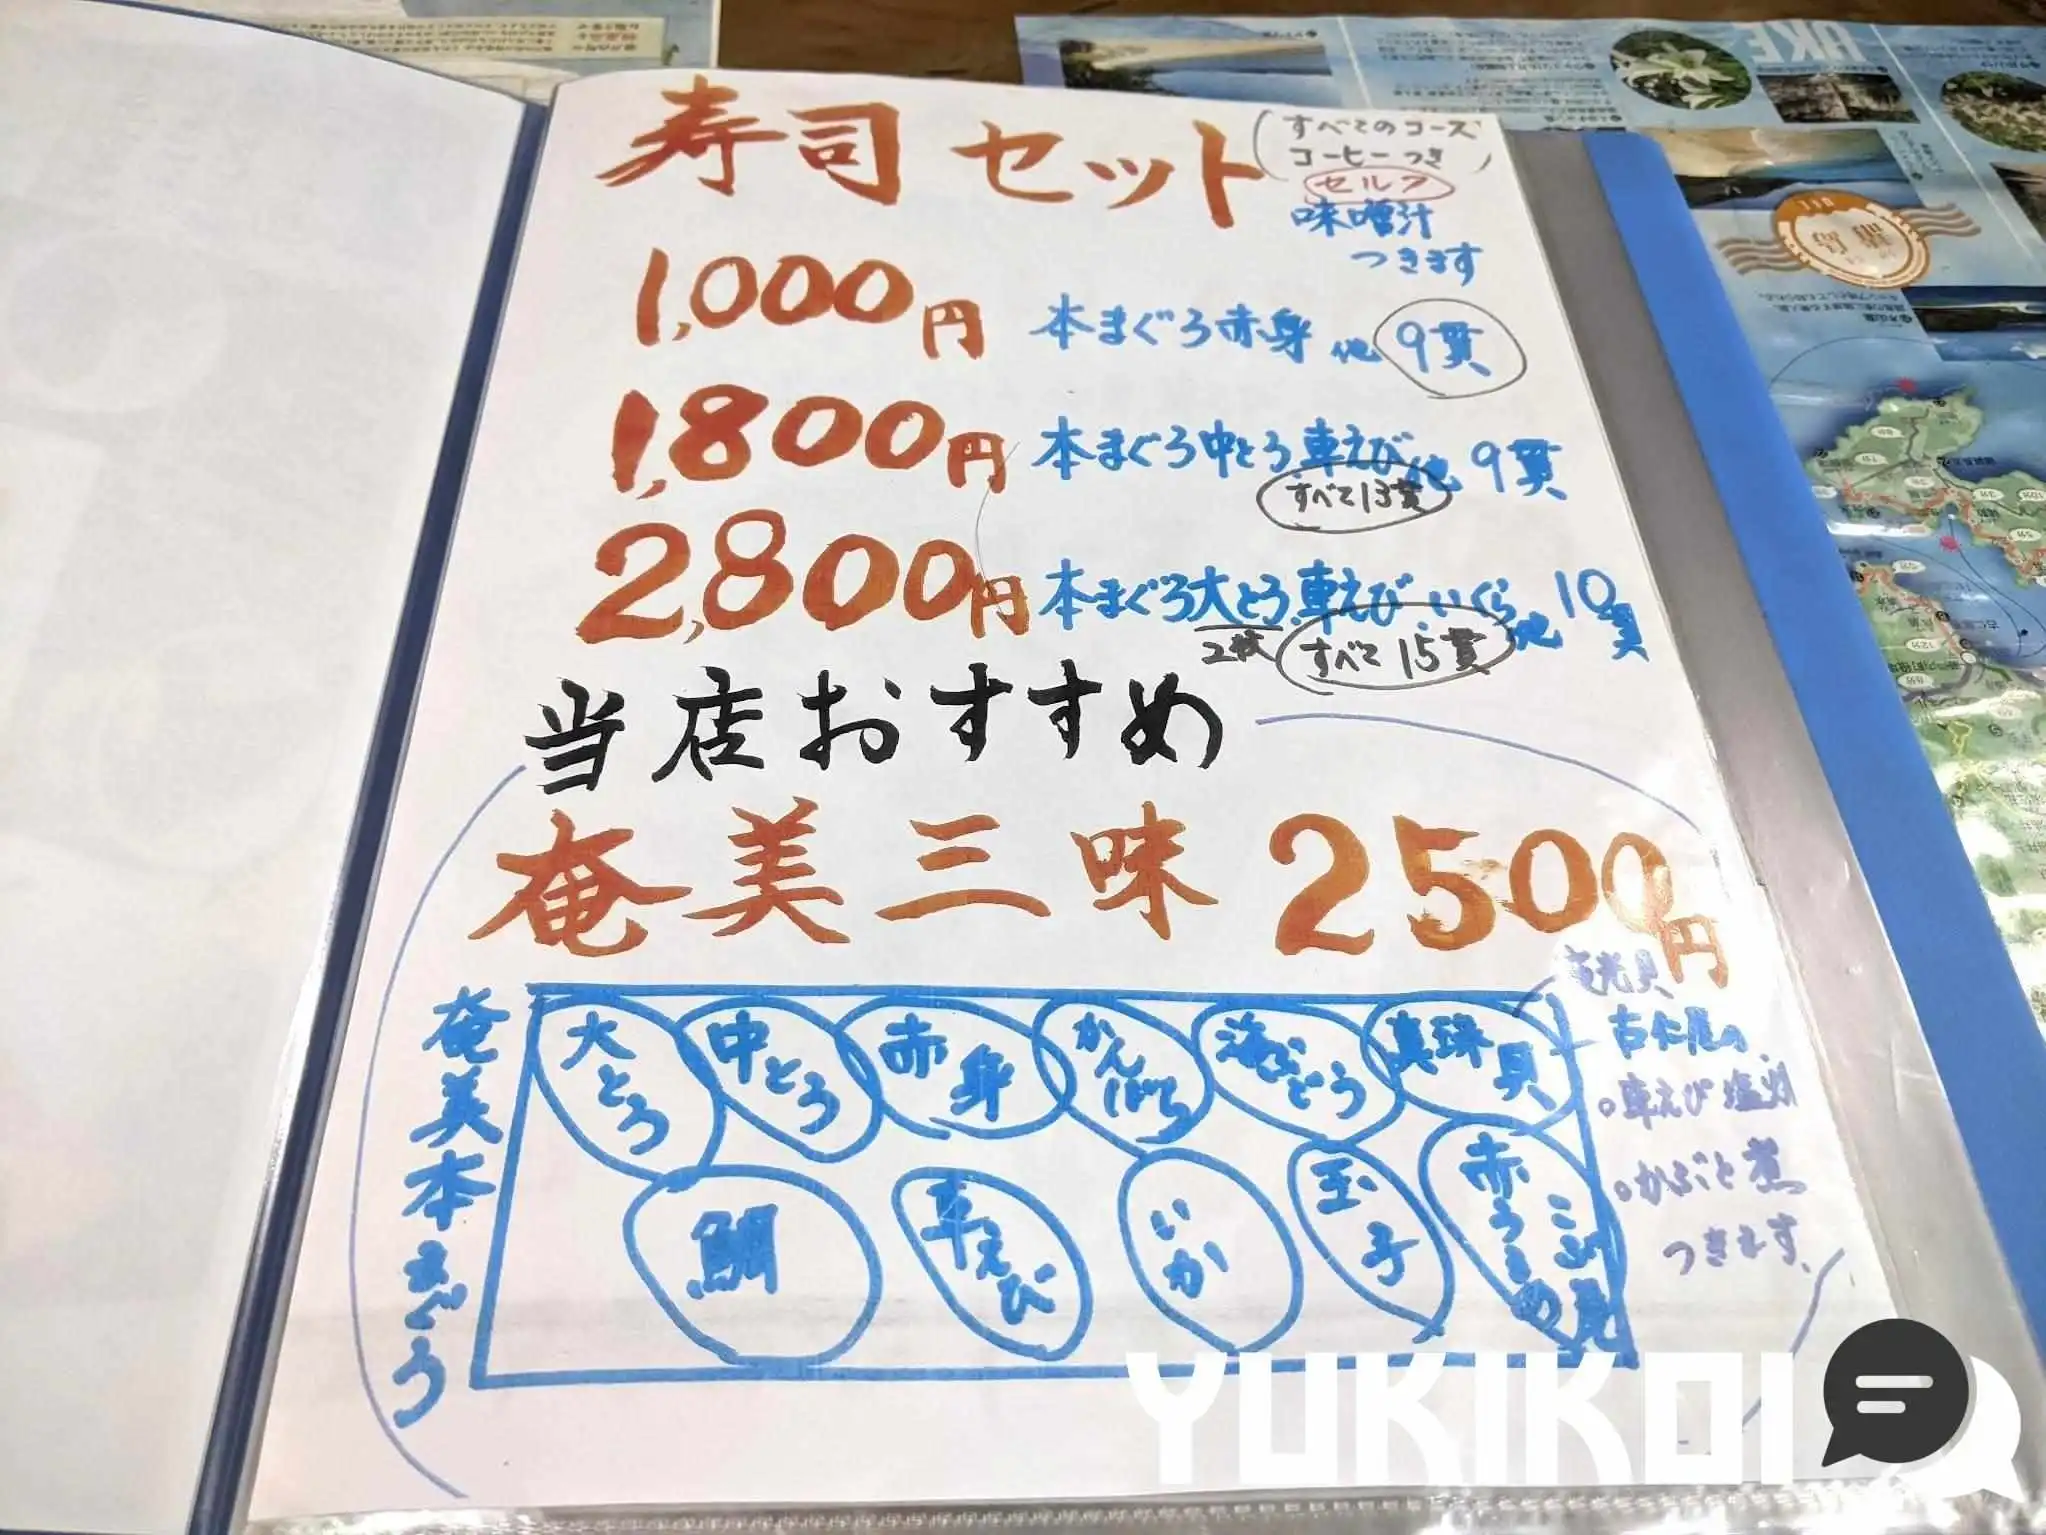 寿司セット
(すべてのコース
コーヒーつき)
セルフ
味噌汁
つきます
1,000円 本まぐろ赤身 他 9貫
1,800円 本まぐろ中とろ.車えび他 9貫
すべて13貫
2,800円 本まぐろ大とろ.車えび.いくら他 10貫
2枚 すべて15貫
当店おすすめ
奄美三味 2500円
奄美本まぐろ
大とろ 中とろ 赤身 かんぱち 海ぶどう 真珠貝
鯛 車えび いか 玉子 赤うるめ
夜光貝
古仁屋の
○車えび塩焼
○かぶと煮
つきます.
YUKIKOI